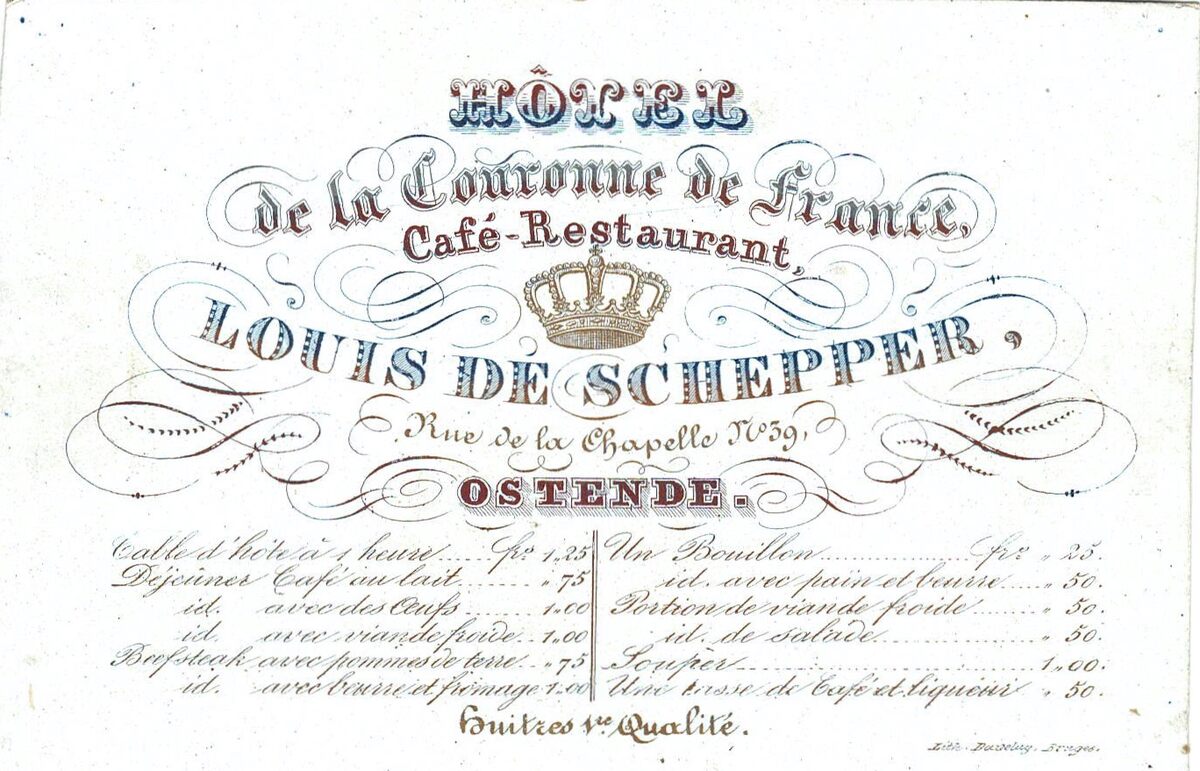 HÔTEL
de la Couronne de France,
Café-Restaurant,
LOUIS DE SCHEPPER,
Rue de la Chapelle No 39,
OSTENDE.
Table d'hôte à 1 heure ..... frs 1,25
Déjeûner Café au lait ........ " 75
id. avec des Œufs ....... 1"00
id. avec viande froide .. 1,00
Brefsteak avec pommes de terre .. " 75
id. avec beurre et fromage 1"00
Un Bouillon ............ frs " 25.
id. avec pain et beurre ..... " 50.
Portion de viande froide ....... " 50.
id. de salade ............ " 50.
Souper ............ 1"00.
Une tasse de Café et liqueur " 50.
Huîtres 1re Qualité.
Lith. Daveluy, Bruges.